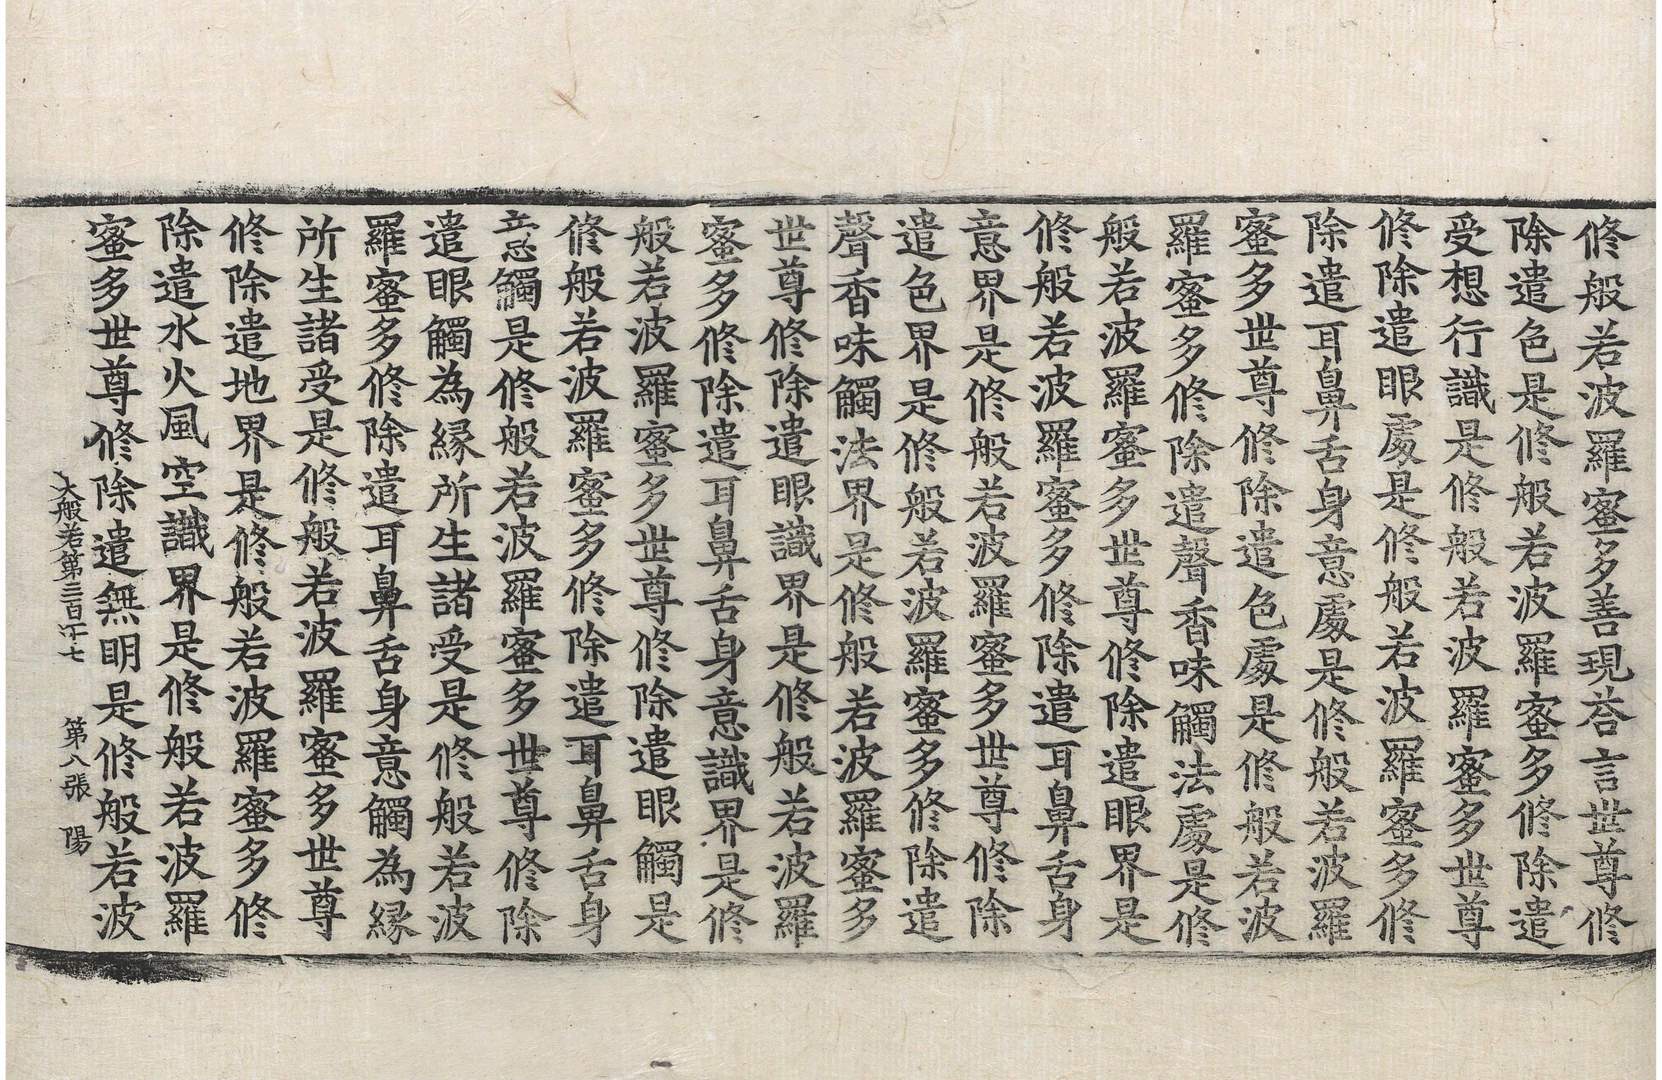 修般若波羅蜜多善現荅言世尊修
除遣色是修般若波羅蜜多修除遣
受想行識是修般若波羅蜜多世尊
修除遣眼處是修般若波羅蜜多修
除遣耳鼻舌身意處是修般若波羅
蜜多世尊修除遣色處是修般若波
羅蜜多修除遣聲香味觸法處是修
般若波羅蜜多世尊修除遣眼界是
修般若波羅蜜多修除遣耳鼻舌身
意界是修般若波羅蜜多世尊修除
遣色界是修般若波羅蜜多修除遣
聲香味觸法界是修般若波羅蜜多
世尊修除遣眼識界是修般若波羅
蜜多修除遣耳鼻舌身意識界是修
般若波羅蜜多世尊修除遣眼觸是
修般若波羅蜜多修除遣耳鼻舌身
意觸是修般若波羅蜜多世尊修除
遣眼觸為縁所生諸受是修般若波
羅蜜多修除遣耳鼻舌身意觸為縁
所生諸受是修般若波羅蜜多世尊
修除遣地界是修般若波羅蜜多修
除遣水火風空識界是修般若波羅
蜜多世尊修除遣無明是修般若波
大般若第三百十七 第八張 陽